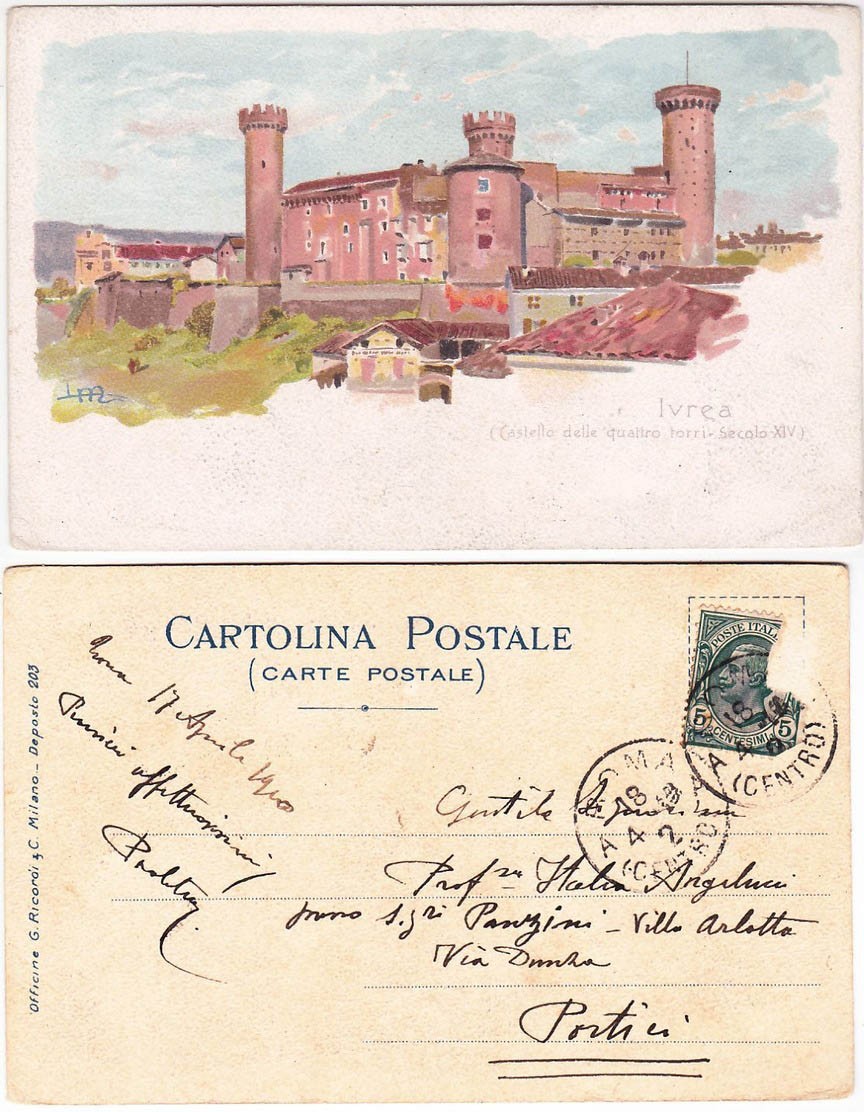 Ivrea
(Castello delle quattro torri - Secolo XIV)
CARTOLINA POSTALE
(CARTE POSTALE)
Officine G. Ricordi & C. Milano - Deposto 203
Roma 17 Aprile 1910
POSTE ITAL
5 CENTESIMI 5
ROMA
18 4
(CENTRO)
ROMA
18 4
2
(CENTRO)
Gentile Signorina
Prof.ra Italia Angeluci
presso S.gri Panzini - Villa Arlotta
Via
Portici